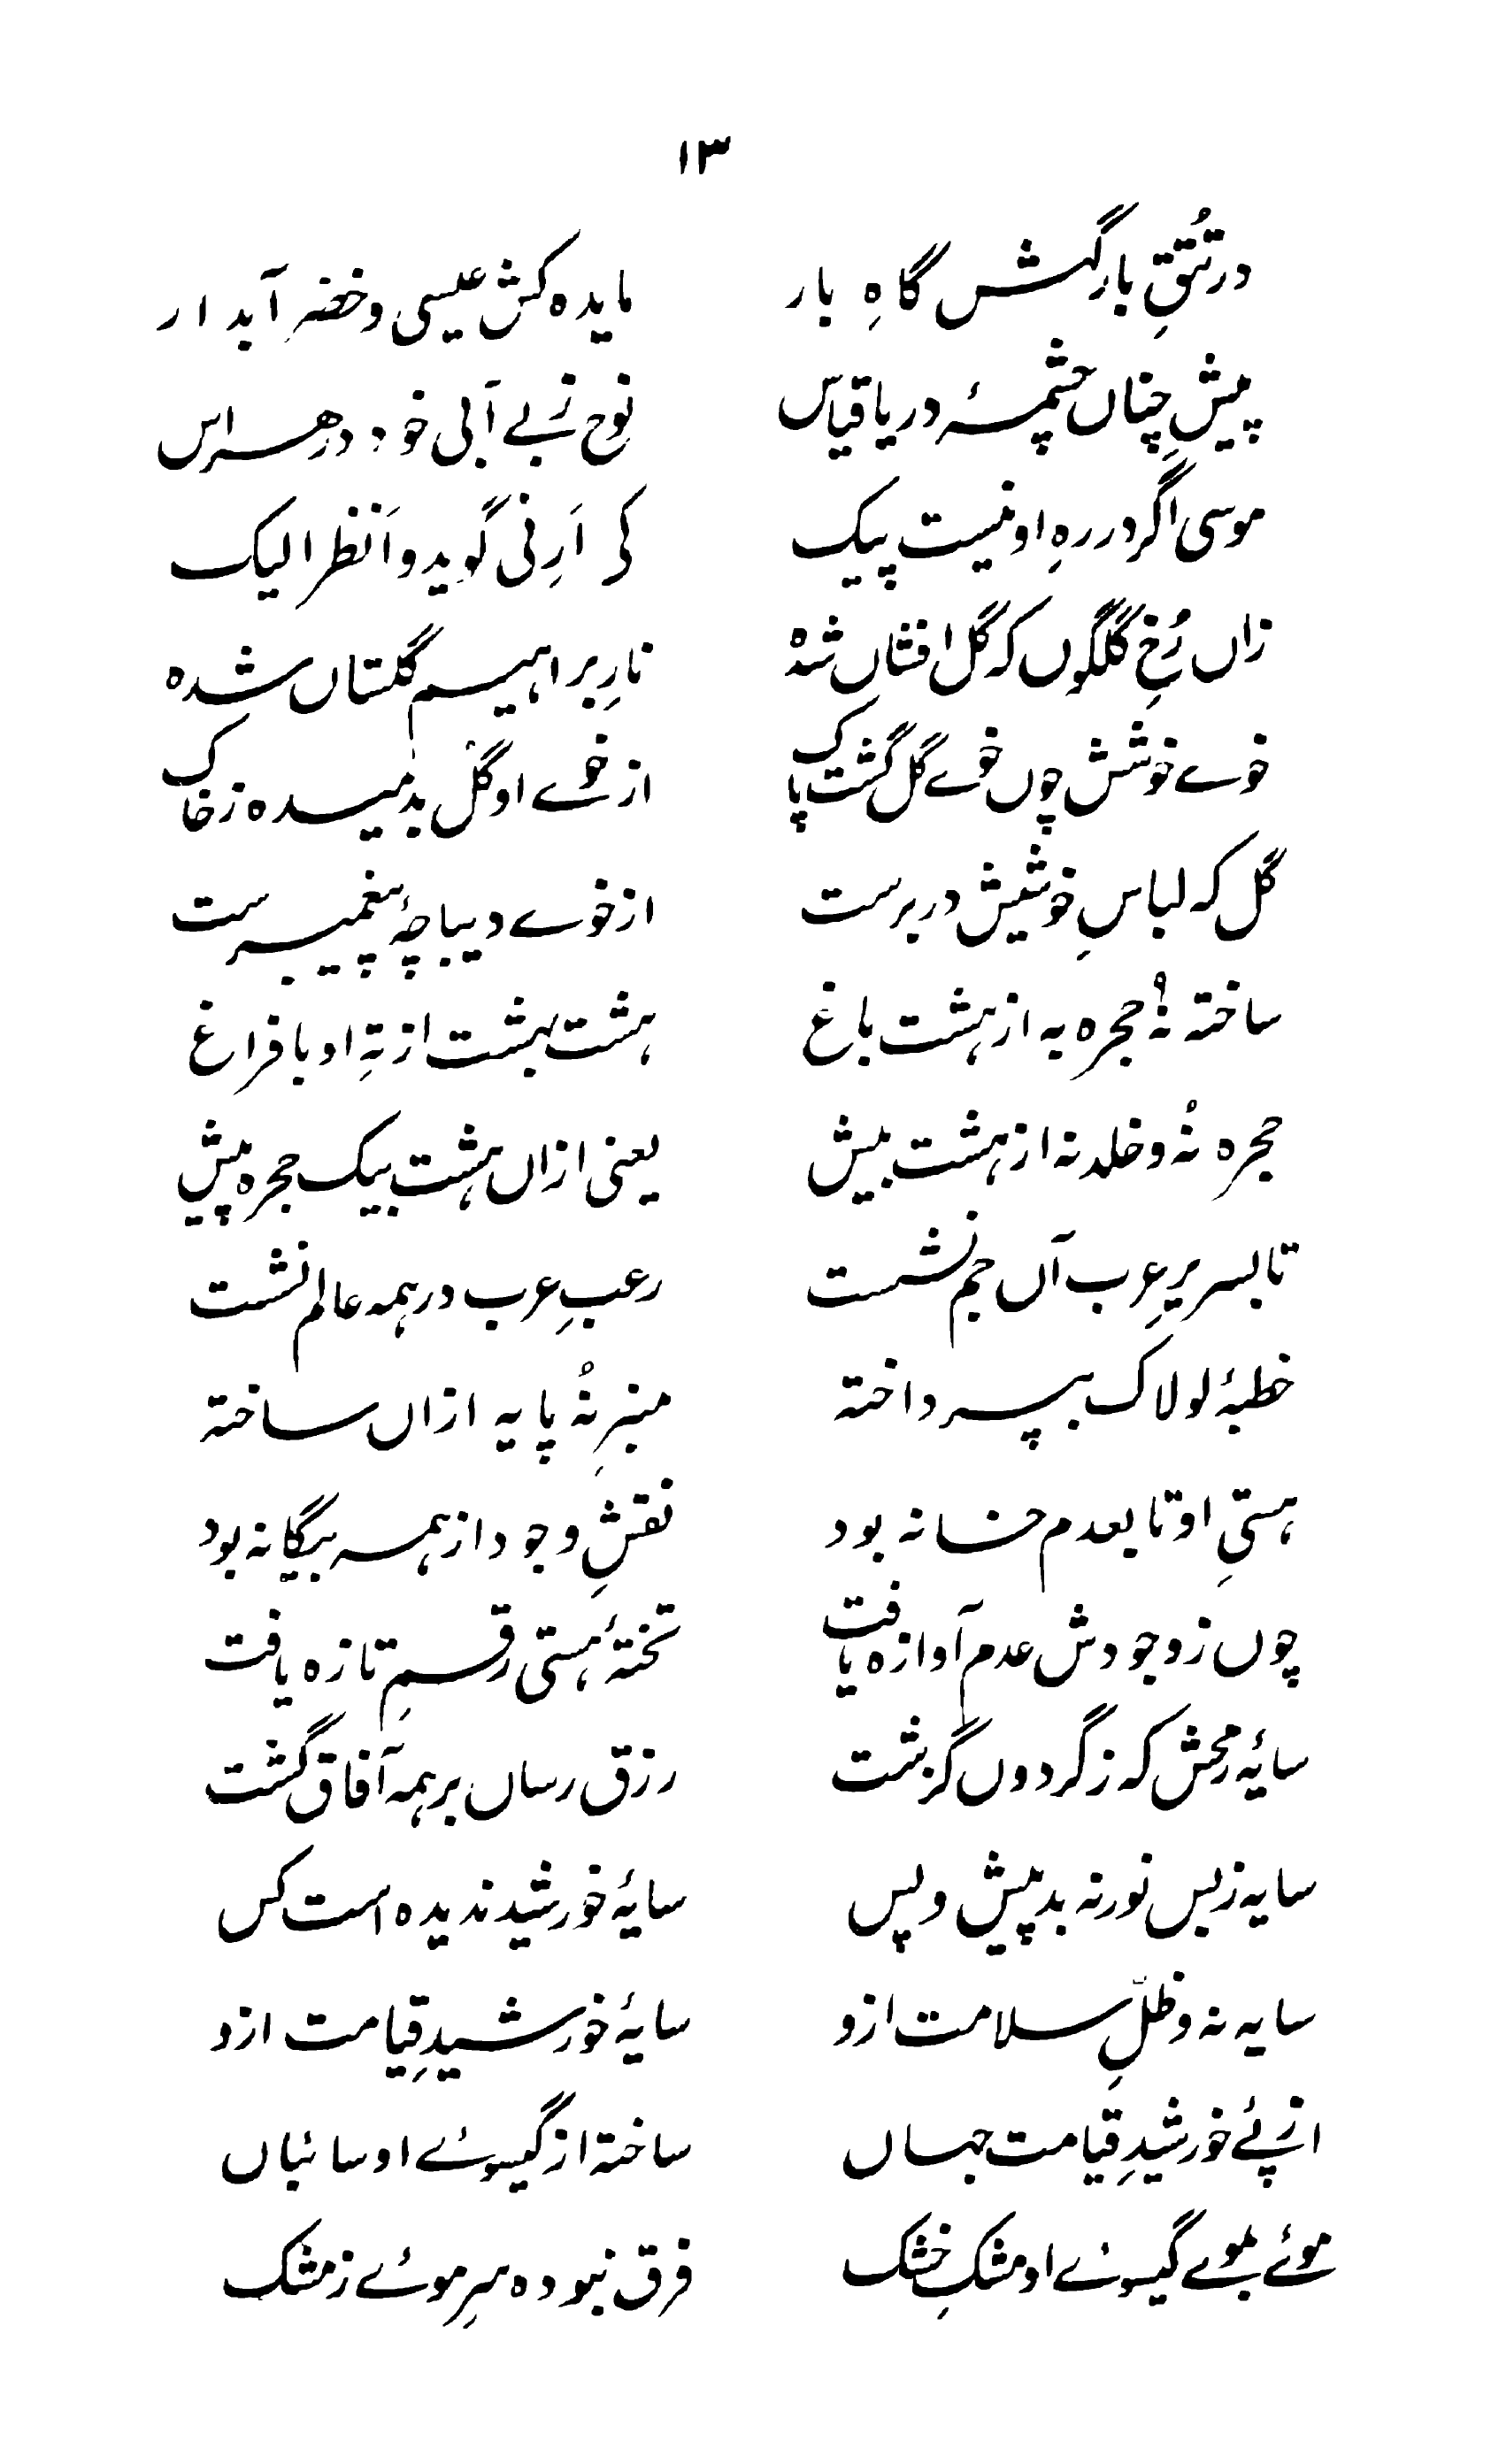 ۱۳
در تُتُقِ بارگہش گاہِ بار مایدہ کش عیسی و خضر آبدار
پیشِ چناں چشمۂ دریا قیاس نوح ز بے آبی خود در ہراس
موسی اگر در رہِ او نیست پیک کی اَرِنی گوید و اَنظر الیک
زاں رُخِ گلگوں کہ گل افشاں شدہ نارِ براہیم گلستاں شدہ
خوے خوشش چوں خوے گل گشت پاک از خوے او گل بدمیدہ ز خاک
گل کہ لباسِ خوشیش در برست از خوے دیباچۂ پیغمبرست
ساختہ نُہ حجرہ بہ از ہشت باغ ہشت بہشت از تہِ او با فراغ
حجرہ نُہ و خلد نہ از ہشت بیش یعنی ازاں ہشت بیک حجرہ پیش
تا بسریرِ عرب آں جم نشست رعبِ عرب در ہمہ عالم نشست
خطبۂ لولاک بپرداختہ منبرِ نُہ پایہ ازاں ساختہ
ہستیِ او تا بعدم خانہ بود نقشِ وجود از ہمہ بیگانہ بود
چوں ز وجودش عدم آوازہ یافت تختۂ ہستی رقمِ تازہ یافت
سایۂ رخش کہ ز گردوں گزشت رزق رساں بر ہمہ آفاق گشت
سایہ ز بس نور نہ بد پیش و پس سایۂ خورشید ندیدہ است کس
سایہ نہ و ظلِّ سلامت ازو سایۂ خورشیدِ قیامت ازو
از پئے خورشیدِ قیامت جہاں ساختہ از گیسوے او سائباں
موئے بموے گیسوے او مشکِ خشک فرق نبودہ سرِ موئے ز مشک